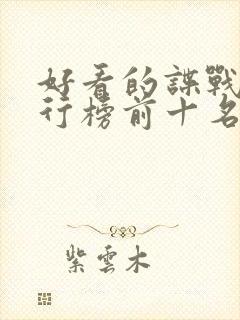 好看的諜戰
行榜前十名
紫雲木